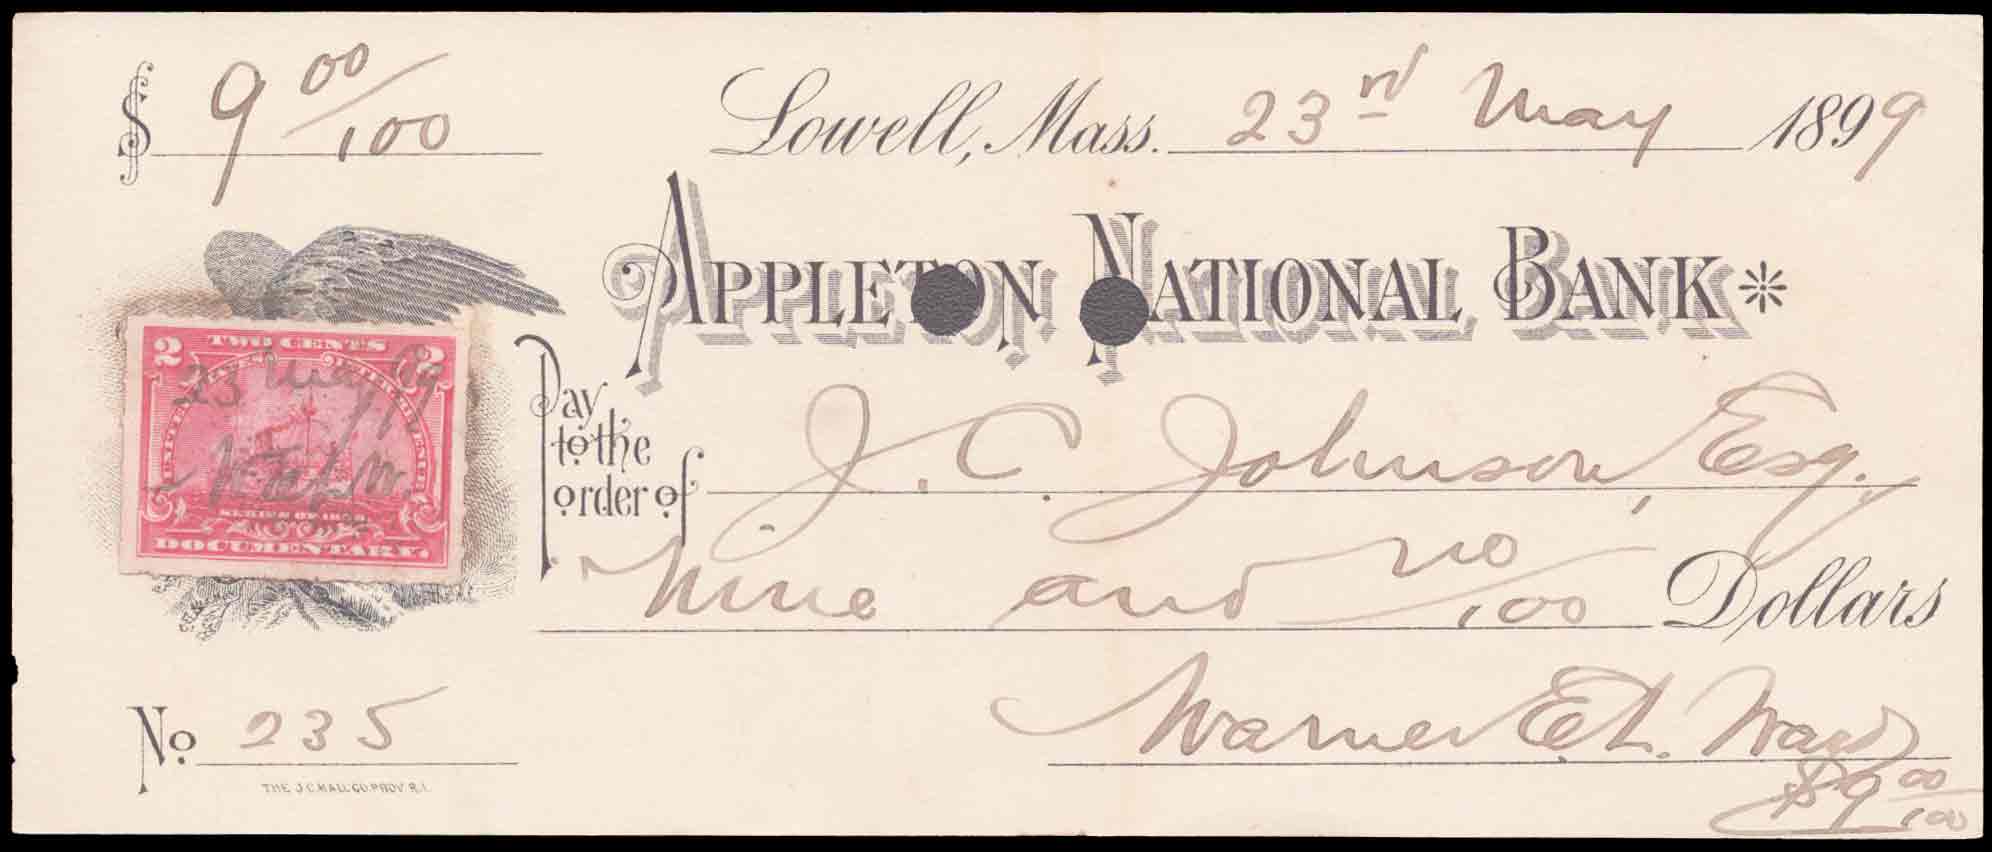 $ 9 00/100
Lowell, Mass. 23rd May 1899
APPLETON NATIONAL BANK
Pay to the order of J. C. Johnson, Esq.
Nine and no/100 Dollars
2 TWO CENTS 2
23 May 99
SERIES OF 1898
DOCUMENTARY.
No 235
Warner E. L. Ward
$9 00/100
THE J.C. HALL CO. PROV. R.I.